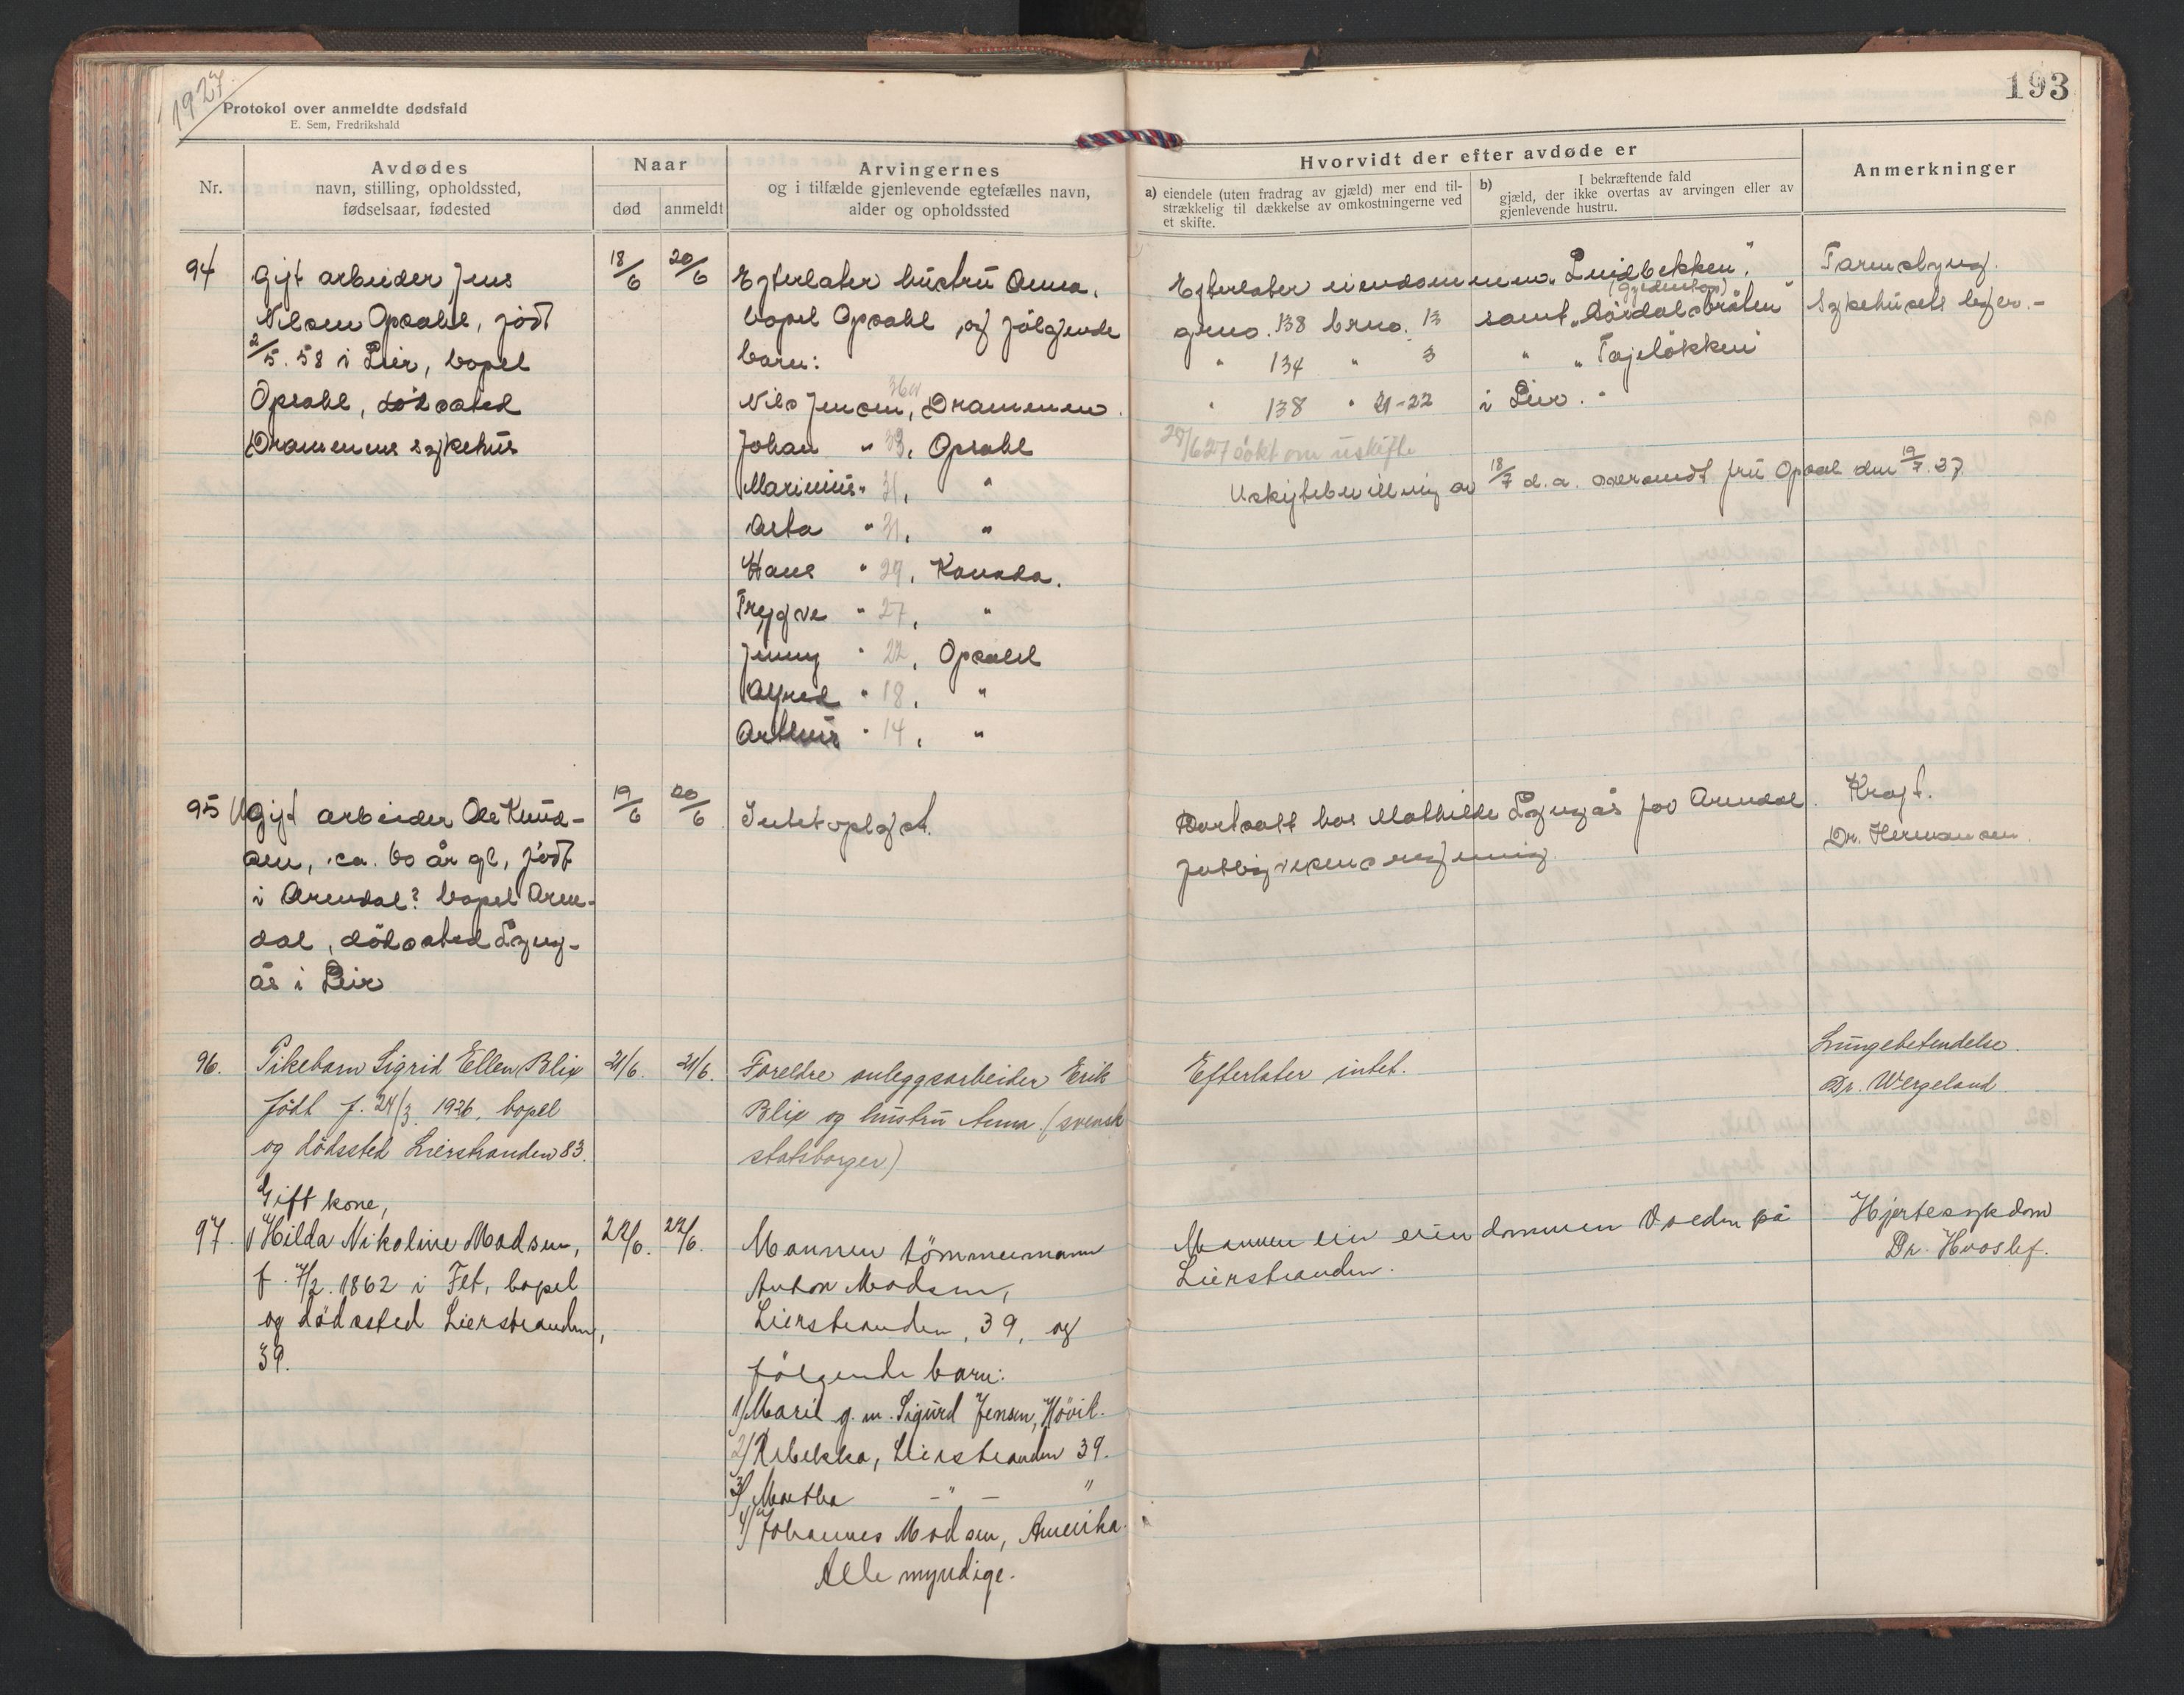 1927
193
Protokol over anmeldte dødsfald
E. Sem, Fredrikshald
Nr.
Avdødes
navn, stilling, opholdssted,
fødselsaar, fødested
Naar
død
anmeldt
Arvingernes
og i tilfælde gjenlevende egtefælles navn,
alder og opholdssted
Hvorvidt der efter avdøde er
a) eiendele (uten fradrag av gjæld) mer end til-
strækkelig til dækkelse av omkostningerne ved
et skifte.
b) I bekræftende fald
gjæld, der ikke overtas av arvingen eller av
gjenlevende hustru.
Anmerkninger
94
Gift arbeider Jens
Nilsen Opsahl, født
2/5. 58 i Lier, bopel
Opsahl, dödssted
Drammens sykehus
18/6
20/6
Efterlater hustru Anna,
bopel Opsahl og følgende
barn:
Nils Jensen, 36 år, Drammen.
Johan " 33, Opsahl
Marinius " 31, "
Asta " 31, "
Hans " 29, Kanada.
Trygve " 27, "
Jenny " 22, Opsahl
Alfred " 18, "
Arthur " 14, "
Efterlater eiendommen "Lindbekken",
grno. 138 brno. 13 samt
" 134 " 3 " "
" 138 " 21-22 i Lier. "
28/6 27 søkt om uskifte
Uskiftebevilling av 18/7 d.a. oversendt fru Opsal den 19/7. 27.
Tarmslyng.
Sykehusets leger. -
95
Ugift arbeider Ole Knud-
sen, ca. 60 år gl, født
i Arendal? bopel Aren-
dal, dödssted Lyng-
ås i Lier
19/6
20/6
Intet oplyst.
Bortsatt hos Mathilde Lyngås for Arendal
fattigvesens regning.
Kreft.
Dr. Hermansen.
96.
Pikebarn Sigrid Ellen Blix
født f. 24/3 1926, bopel
og dödssted Lierstranden 83.
21/6.
21/6.
Foreldre anleggsarbeider Erik
Blix og hustru Anna. (svensk
statsborger)
Efterlater intet.
Lungebetendelse.
Dr. Wergeland
97.
Gift kone,
Hilda Nikoline Madsen,
f. 7/2. 1862 i Fet, bopel
og dödssted Lierstranden,
39.
22/6.
22/6.
Mannen tömmermann
Anton Madsen,
Lierstranden, 39, og
følgende barn:
1) Marit g. m. Sigurd Jensen, Hövik.
2) Rebekka, Lierstranden 39.
3) Martha - " - "
4) Johannes Madsen, Amerika.
Alle myndige.
Mannen eier eiendommen på
Lierstranden.
Hjertesykdom
Dr. Hvoslef.